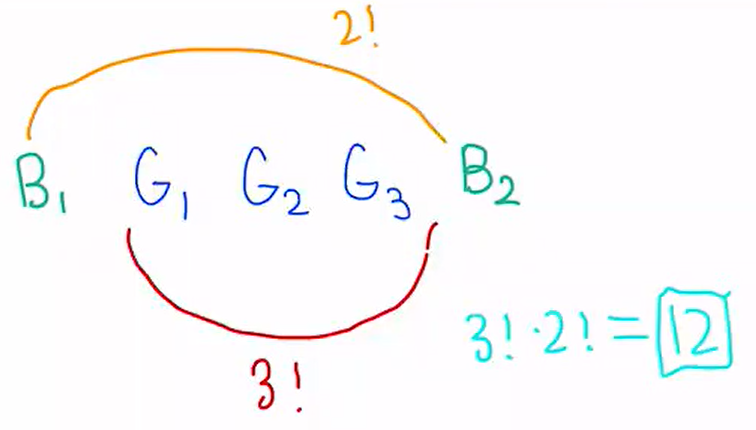 2!
B₁ G₁ G₂ G₃ B₂
3! · 2! = 12
3!